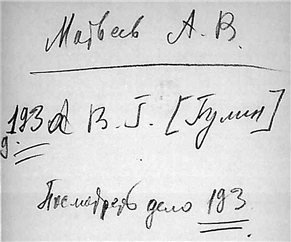 Матвеев А. В.
д. 193 В. Г. [Гулин]
Посмотреть дело 193.